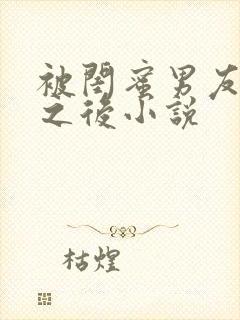 被閨蜜男友
之後小說
枯煌